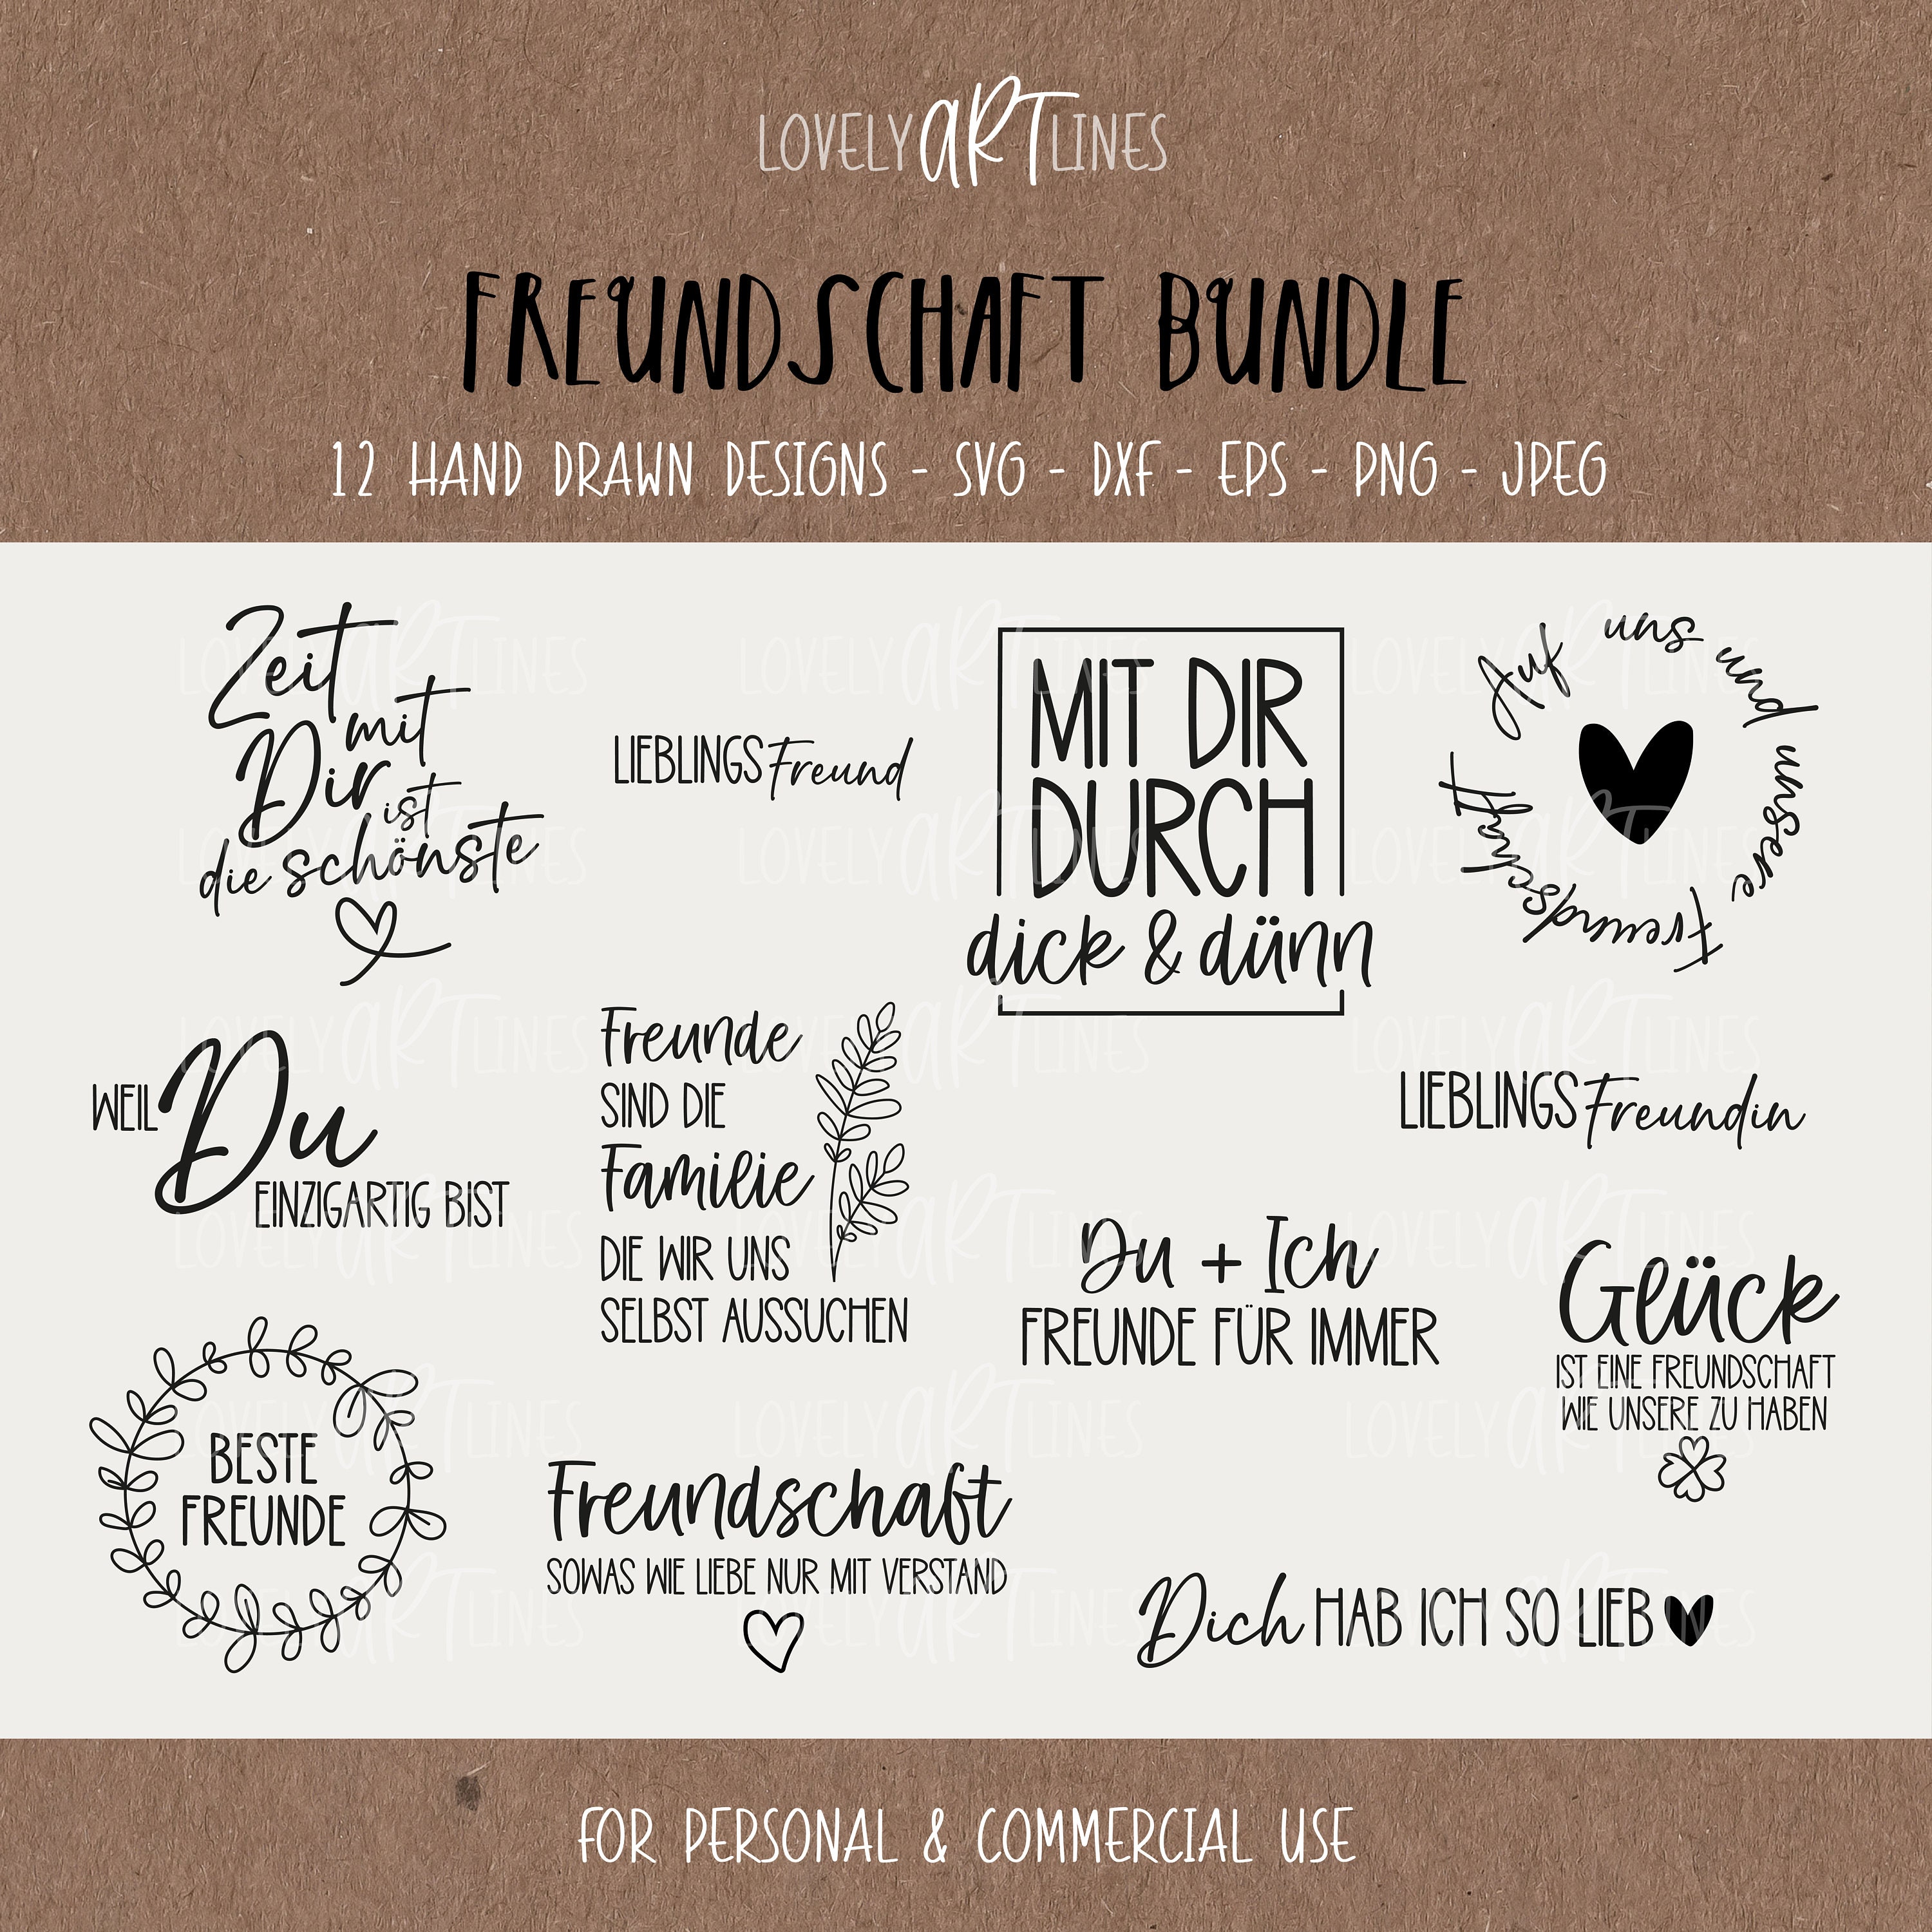 LOVELY ART LINES
FREUNDSCHAFT BUNDLE
12 HAND DRAWN DESIGNS - SVG - DXF - EPS - PNG - JPEG
Zeit
mit
Dir
ist
die schönste
LIEBLINGS Freund
MIT DIR
DURCH
dick & dünn
Auf uns und unsere Freundschaft
WEIL
Du
EINZIGARTIG BIST
Freunde
SIND DIE
Familie
DIE WIR UNS
SELBST AUSSUCHEN
LIEBLINGS Freundin
Du + Ich
FREUNDE FÜR IMMER
Glück
IST EINE FREUNDSCHAFT
WIE UNSERE ZU HABEN
BESTE
FREUNDE
Freundschaft
SOWAS WIE LIEBE NUR MIT VERSTAND
Dich HAB ICH SO LIEB
FOR PERSONAL & COMMERCIAL USE